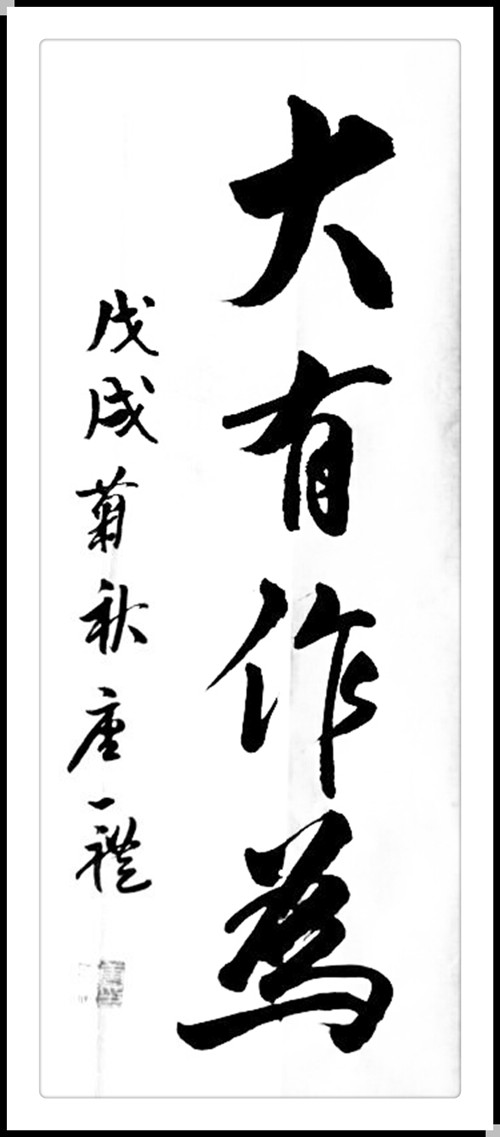 大有作為
戊戌菊秋一禮